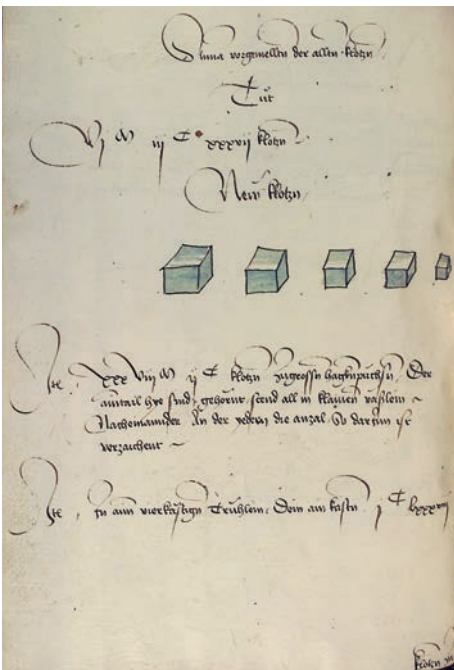 Suma vorgemellten der allten klotzn
Tut
VI M iii C xxxvii klotzn
New klotzn
Ite xxxviii M ii C klotzn zugrossn hagknpuchsn Der
aintail hye sind gehornt stend all in klainen vaslein
Nacheinannder In der yedem die anzal So darInn ist
verzaichent
Ite In ainem vierkastign Truhlein Dem ain kastn j C
klotzn